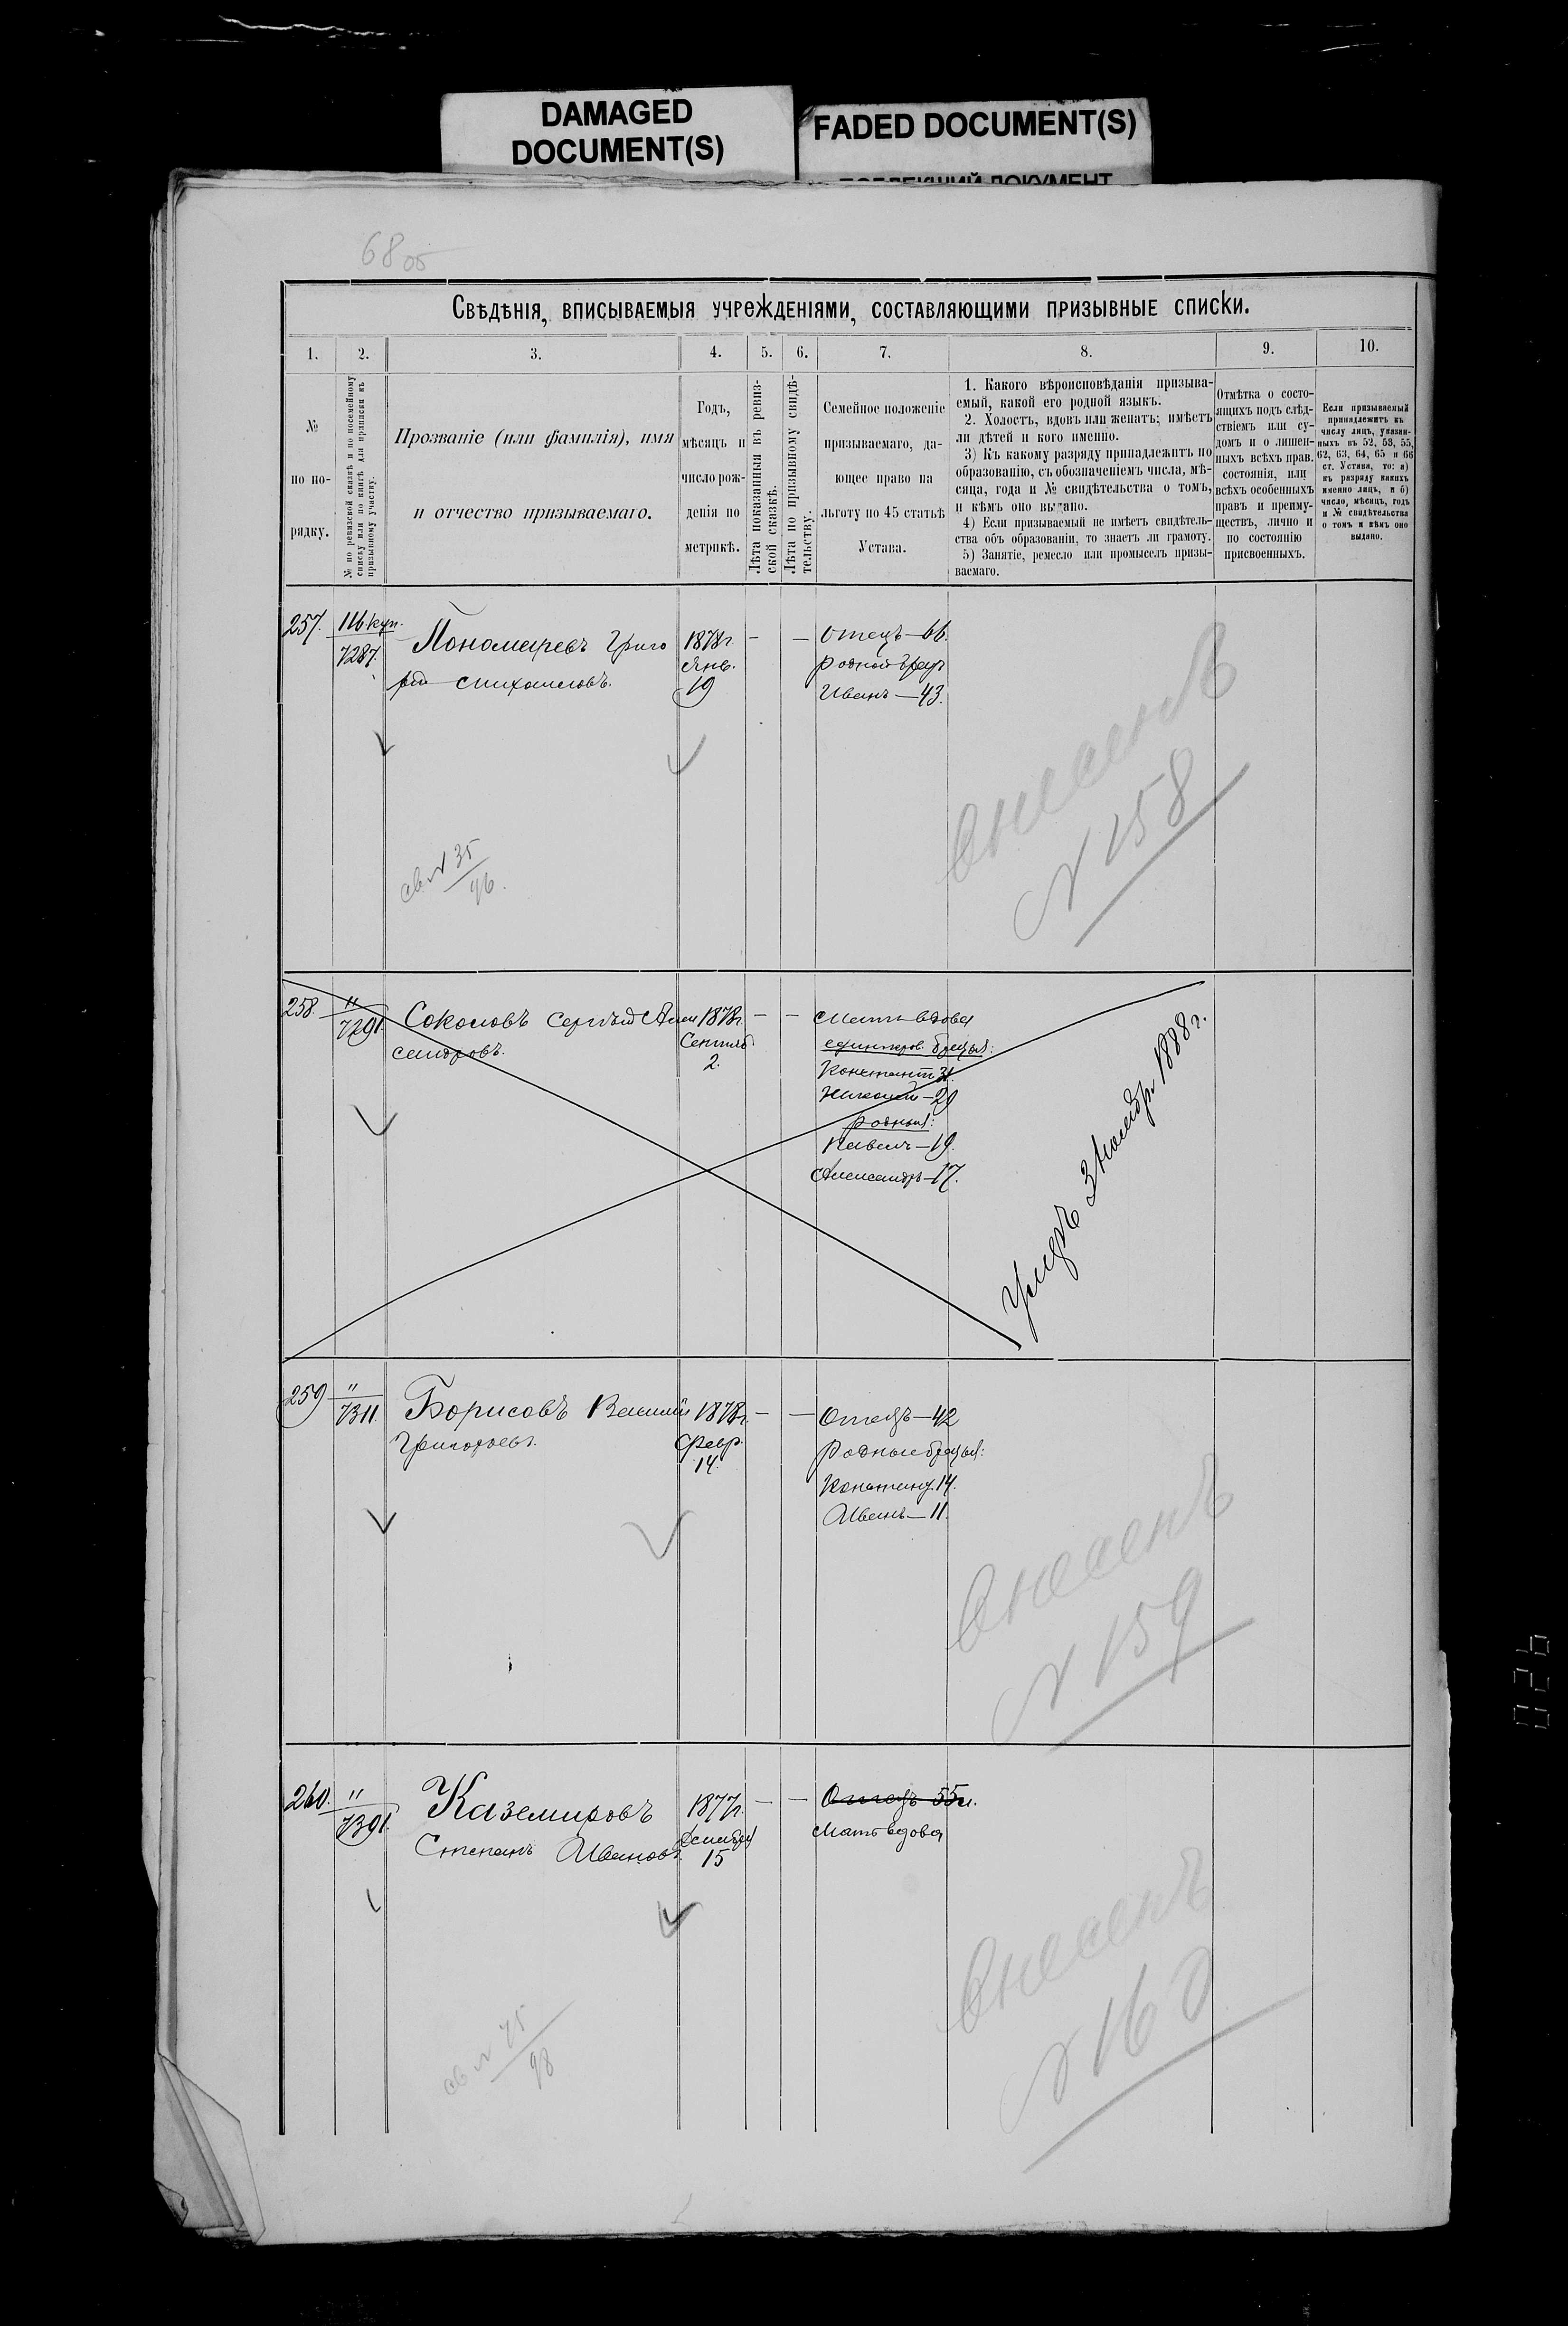 DAMAGED
DOCUMENT(S)
FADED DOCUMENT(S)
68 об
Свѣдѣнія, вписываемыя учрежденіями, составляющими призывные списки.
1. 2. 3. 4. 5. 6. 7. 8. 9. 10.
№
по по-
рядку.
№ по ревизской сказкѣ и по посемейному
списку или по книгѣ для приписки къ
призывному участку.
Прозваніе (или фамилія), имя
и отчество призываемаго.
Годъ,
мѣсяцъ и
число рож-
денія по
метрикѣ.
Лѣта показанныя въ ревиз-
ской сказкѣ.
Лѣта по призывному свидѣ-
тельству.
Семейное положеніе
призываемаго, да-
ющее право на
льготу по 45 статьѣ
Устава.
1. Какого вѣроисповѣданія призыва-
емый, какой его родной языкъ.
2. Холостъ, вдовъ или женатъ; имѣетъ
ли дѣтей и кого именно.
3) Къ какому разряду принадлежитъ по
образованію, съ обозначеніемъ числа, мѣ-
сяца, года и № свидѣтельства о томъ,
и кѣмъ оно выдано.
4) Если призываемый не имѣетъ свидѣтель-
ства объ образованіи, то знаетъ ли грамоту.
5) Занятіе, ремесло или промыселъ призы-
ваемаго.
Отмѣтка о состо-
ящихъ подъ слѣд-
ствіемъ или су-
домъ и о лишен-
ныхъ всѣхъ прав.
состоянія, или
всѣхъ особенныхъ
правъ и преиму-
ществъ, лично и
по состоянію
присвоенныхъ.
Если призываемый
принадлежитъ къ
числу лицъ, указан-
ныхъ въ 52, 53, 55,
62, 63, 64, 65 и 66
ст. Устава, то: а)
къ разряду какихъ
именно лицъ, и б)
число, мѣсяцъ, годъ
и № свидѣтельства
о томъ и кѣмъ оно
выдано.
257. 116 куп.
7287.
Пономаревъ Григо
рій Михаиловъ.
1878г.
Янв.
19
— —
Отецъ — 66.
Родной братъ
Иванъ — 43.
внесенъ
№ 158
св. № 35
96.
258. "
7291
Соколовъ Сергѣй Алек
сандровъ.
1878г.
Сентяб.
2.
— —
Мать вдова
единкров. братья:
Константин 31.
Николай — 29
родные:
Павелъ — 19.
Александръ — 17.
Умеръ 3 Ноября 1888 г.
259 "
7311.
Борисовъ Василій
Григорьевъ.
1878г.
Февр.
14.
— —
Отецъ — 42
Родные братья:
Константинъ 14.
Иванъ — 11.
внесенъ
№ 159
260. "
7391.
Каземировъ
Степанъ Ивановъ.
1877г.
Декабря
15
— —
Отецъ 55 л.
Мать вдова
внесенъ
№ 160
св № 75
98
026